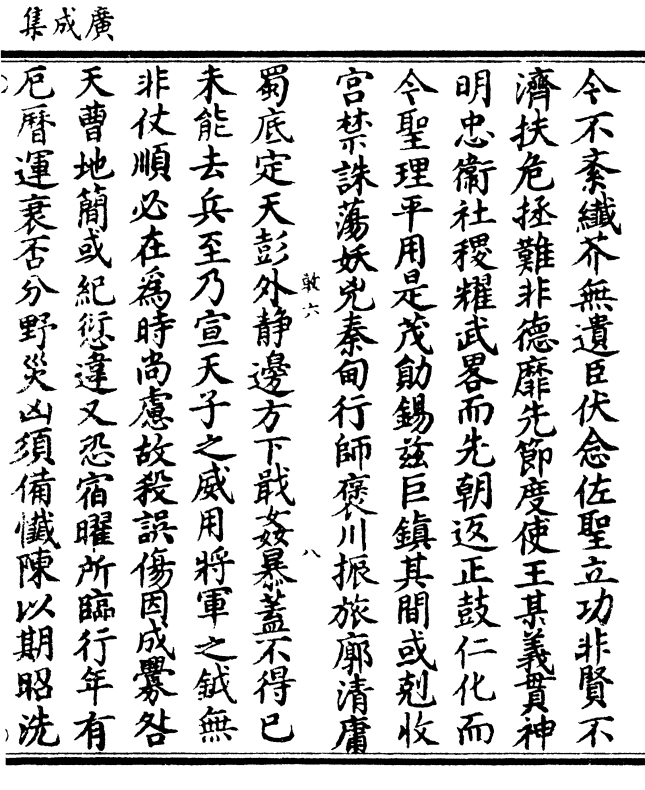 廣成集
令不紊纖芥無遺臣伏念佐聖立功非賢不
濟扶危拯難非德靡先節度使王某義貫神
明忠衞社稷耀武畧而先朝返正鼓仁化而
今聖理平用是茂勛錫兹巨鎮其間或剋收
宮禁誅蕩妖兇秦甸行師褒川振旅廓清庸
敢六
八
蜀底定天彭外静邊方下戢姦暴蓋不得已
未能去兵至乃宣天子之威用將軍之鉞無
非仗順必在爲時尚慮故殺誤傷因成釁咎
天曹地簡或紀愆違又恐宿曜所臨行年有
厄曆運衰否分野災凶須備懺陳以期昭洗